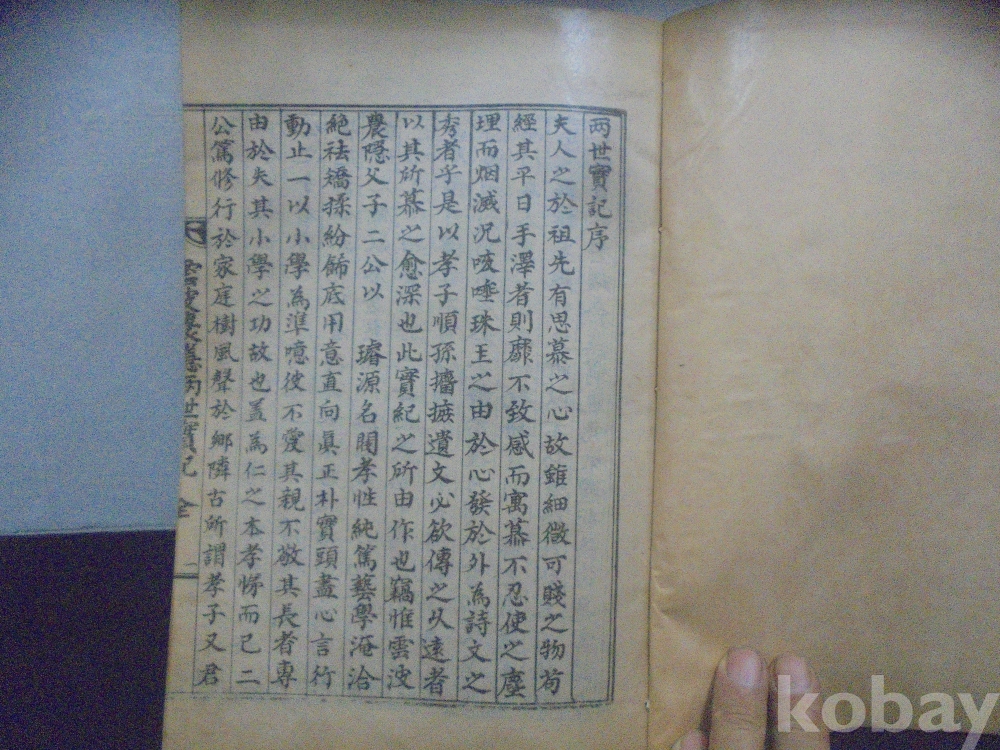 两世實記序
夫人之於祖先有思慕之心故雖細微可賤之物苟
經其平日手澤者則靡不致感而寓慕不忍使之塵
埋而烟滅况咳唾珠玉之由於心發於外為詩文之
秀者乎是以孝子順孫攟摭遺文必欲傳之久遠者
以其所慕之愈深也此實紀之所由作也竊惟雲浚
農隱父子二公以 璿源名閥孝性純篤藝學淹洽
絶祛矯揉紛餙底用意直向眞正朴實頭盡心言行
動止一以小學為準噫彼不愛其親不敬其長者專
由於失其小學之功故也盖為仁之本孝悌而已二
公篤修行於家庭樹風聲於鄉隣古所謂孝子又君
農隱两世實記 全 一
kobay